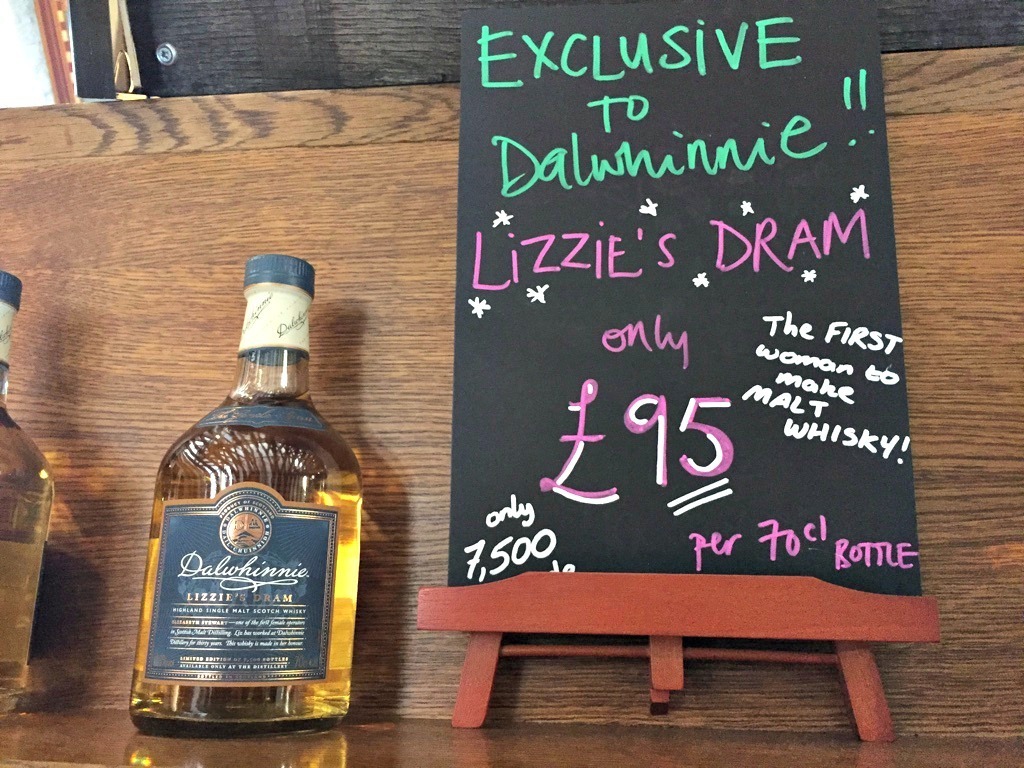 EXCLUSIVE
TO
Dalwhinnie!!
LIZZIE'S DRAM
only
£95
The FIRST
woman to
make
MALT
WHISKY!
only
7,500
per 70cl BOTTLE
Dalwhinnie
Dalwhinnie
LIZZIE'S DRAM
HIGHLAND SINGLE MALT SCOTCH WHISKY
ELIZABETH STEWART—one of the first female operators
in Scottish Malt Distilling. Liz has worked at Dalwhinnie
Distillery for thirty years. This whisky is made in her honour.
LIMITED EDITION OF 7,500 BOTTLES
AVAILABLE ONLY AT THE DISTILLERY